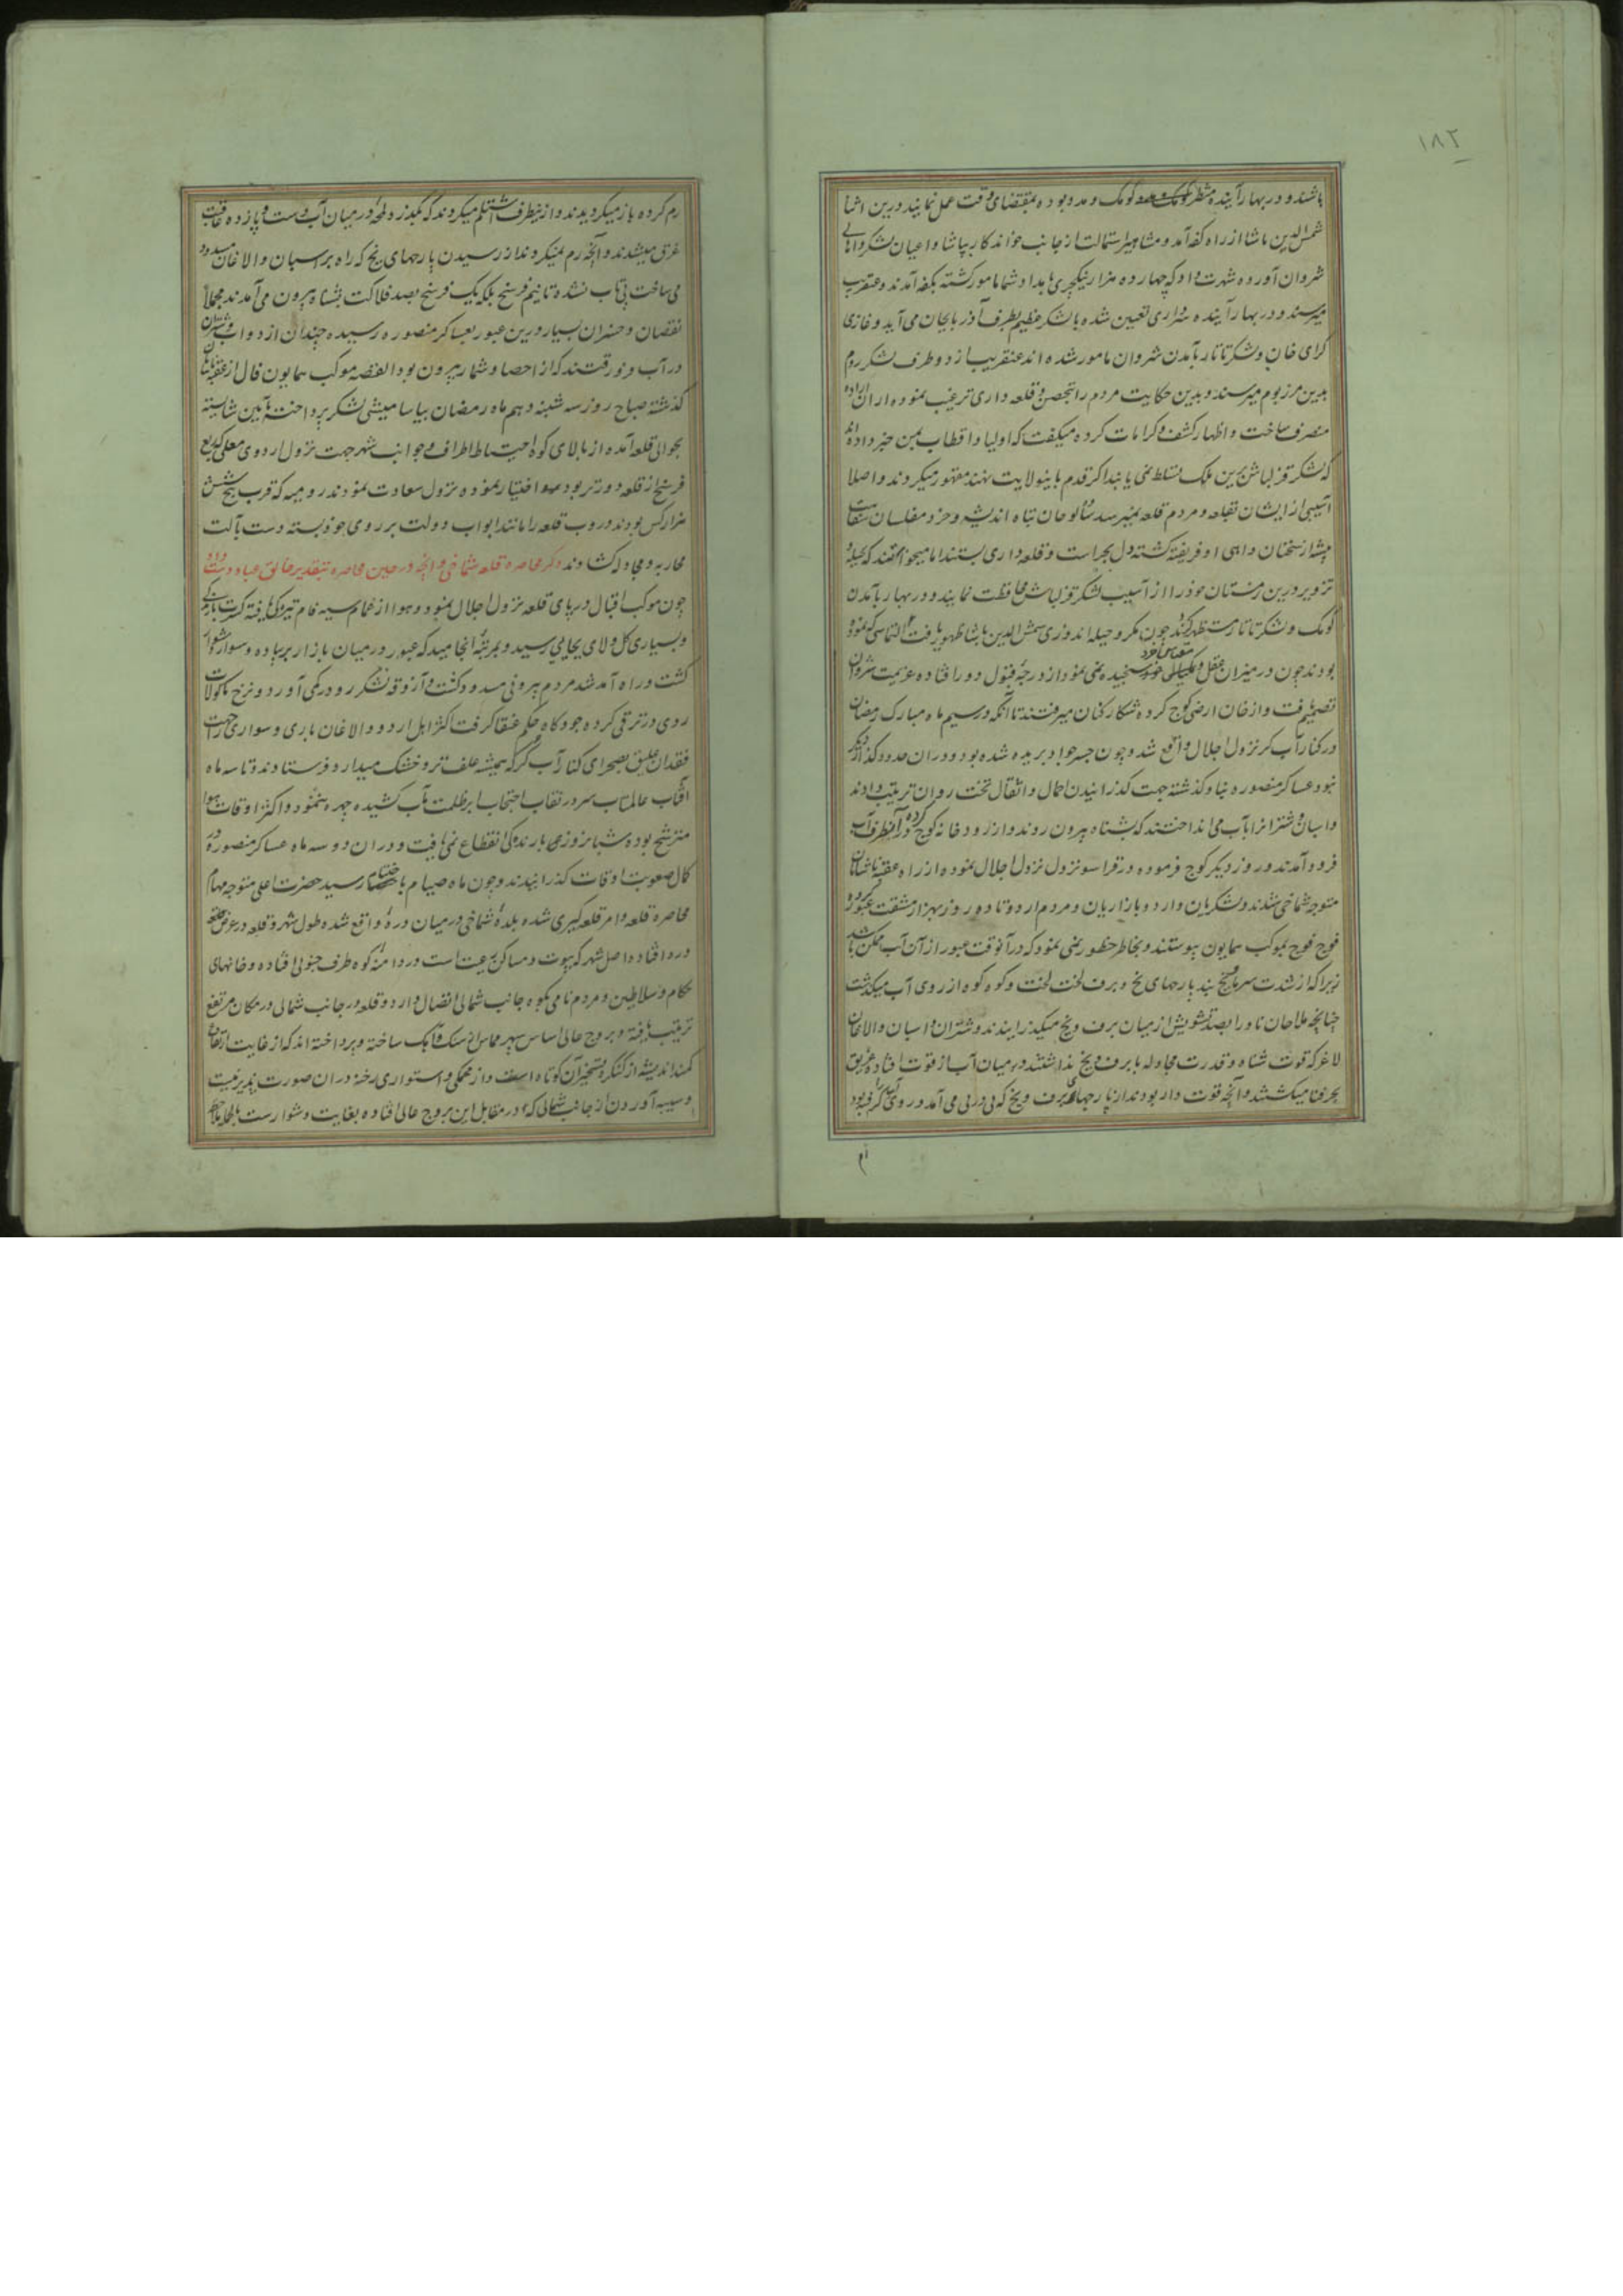 ۱۸۲
باشند و در بهار آینده منتظر کومک و مدد بوده بمقتضای وقت عمل نمایند درین اثنا
شمس الدین پاشا از راه کفه آمد و مشاهیر استمالت از جانب خواندکار بپاشا و اعیان لشکر و اهالی
شروان آورده شهرت داد که چهارده هزار ینکچری بامداد شما مامور کشته بکفه آمدند و عنقریب
میرسند و در بهار آینده سرداری تعیین شده با لشکر عظیم بطرف آذربایجان می آید و غازی
کرای خان و لشکر تاتار بآمدن شروان مامور شده اند عنقریب از دو طرف لشکر روم
بدین مرز بوم میرسند و بدین حکایت مردم را بتحصن و قلعه داری ترغیب نموده از ان اراده
منصرف ساخت و اظهار کشف و کرامات کرده میکفت که اولیا و اقطاب بمن خبر داده اند
که لشکر قزلباش برین ملک تسلط نمی یابند اکر قدم باینولایت نهند مقهور میکردند و اصلا
آسیبی از ایشان بقلعه و مردم قلعه نمیرسد ساده لوحان تباه اندیشه و خرد مفلسان
پیشه از سخنان واهی او فریفته کشته دل بحراست و قلعه داری بستند اما میخواستند که بحیله و
تزویر درین زمستان خود را از آسیب لشکر قزلباش محافظت نمایند و در بهار بآمدن
کومک و لشکر تاتار مستظهر کردند چون مکر و حیله اندوزی شمس الدین پاشا ظهور یافت التماسی که نموده
بودند چون در میزان عقل و قیاس خرد سنجیده نمی نمود از درجه قبول دور افتاده عزیمت شروان
تصمیم یافت و از خان ارخی کوچ کرده شکار کنان میرفتند تا آنکه در سیم ماه مبارک رمضان
در کنار آب کر نزول اجلال واقع شد و چون جسر جواد بریده شده بود و در ان حدود گذار دیگر
نبود عساکر منصوره بنیاد گذشته جهت کذرانیدن احمال و اثقال تخت روان ترتیب دادند
و اسبان و شترانرا بآب می انداختند که بشناه بیرون روند و از رودخانه کوچ کرده در آنطرف آب
فرود آمدند و روز دیکر کوچ فرموده در قراسو نزول نزول اجلال نموده از راه عقبه پاشایان
متوجه شماخی شدند و لشکریان و اردو بازاریان و مردم اردو تا ده روز بهزار مشقت عبور کرده
فوج فوج بموکب همایون پیوستند و بخاطر خطور نمی نمود که در آنوقت عبور از آن آب ممکن باشد
زیرا که از شدت سرما یخ بند پارهای یخ و برف لخت لخت و کوه کوه از روی آب میکذشت
چنانچه ملاحان ناو را بصد تشویش از میان برف و یخ میکذرانیدند و شتران و اسبان و الاغان
لاغر که قوت شناه و قدرت مجادله با برف و یخ نداشتند در میان آب از قوت افتاده غریق
بحر فنا میکشتند و آنچه قوت دار بودند از پارهای برف و یخ که پی در پی می آمد و روی آب را کرفته بود
رم
رم کرده باز میکردیدند و از ینطرف اشتلم میکردند که بکذرد لمحه در میان آب دست و پا زده عاقبت
غرق میشدند و آنچه رم نمیکردند از رسیدن پارهای یخ که راه بر اسبان و الاغان مسدود
می ساخت بیتاب نشده تا نیم فرسخ بلکه یک فرسخ بصد فلاکت بشناه بیرون می آمدند مجملا
نقصان و خسران بسیار درین عبور بعساکر منصوره رسیده چندان از دواب و شتران
در آب فرو رفتند که از احصا و شمار بیرون بود القصه موکب همایون فال از عقبه پاشایان
کذشته صباح روز سه شنبه دهم ماه رمضان بیاسامیشی لشکر پرداخته بآیین شایسته
بحوالی قلعه آمده از بالای کوه احتیاط اطراف و جوانب شهر جهت نزول اردوی معلی که ربع
فرسخ از قلعه دورتر بود اختیار نموده نزول سعادت نمودند رومیه که قرب پنج شش
هزار کس بودند دروب قلعه را مانند ابواب دولت بر روی خود بسته دست بآلت
محاربه و مجادله کشادند ذکر محاصره قلعه شماخی و آنچه در حین محاصره بتقدیر خالق عباد دست داد
چون موکب اقبال در پای قلعه نزول اجلال نمود و هوا از غمام سیه فام تیرکی یافته کثرت بارندکی
و بسیاری کل و لای بجایی رسید و بمرتبه انجامید که عبور در میان بازار بر پیاده و سوار دشوار
کشت و راه آمد شد مردم بیرونی مسدود کشت و آزوقه لشکر رو در کمی آورد و نرخ ماکولات
روی در ترقی کرده جو و کاه حکم عنقا کرفت اکثر اهل اردو و الاغان باری و سواری را جهت
فقدان علیق بصحرای کنار آب کر که همیشه علف تر و خشک میدارد فرستادند و تا سه ماه
آفتاب عالمتاب سر در نقاب احتجاب ابر ظلمت مآب کشیده چهره ننمود و اکثر اوقات هوا
مترشح بوده شبانروزی بارندکی انقطاع نمی یافت و در ان دو سه ماه عساکر منصوره در
کمال صعوبت اوقات کذرانیدند و چون ماه صیام باختتام رسید حضرت اعلی متوجه مهام
محاصره قلعه و امر قلعه کیری شده بلده شماخی در میان دره واقع شده طول شهر و قلعه در عرض
دره افتاده اصل شهر که بیوت و مساکن رعیت است در دامنه کوه طرف جنوبی افتاده و خانهای
حکام و سلاطین و مردم نامی بکوه جانب شمالی اتصال دارد و قلعه در جانب شمالی در مکان مرتفع
ترتیب یافته و بروج عالی اساس سپهر مماس از سنک و آهک ساخته و پرداخته اند که از غایت ارتفاع
کمند اندیشه از کنکره تسخیر آن کوتاه است و از محکمی و استواری رخنه در ان صورت پذیر نیست
و سیبه آوردن از جانب شمالی که در مقابل این بروج عالی افتاده بغایت دشوار است